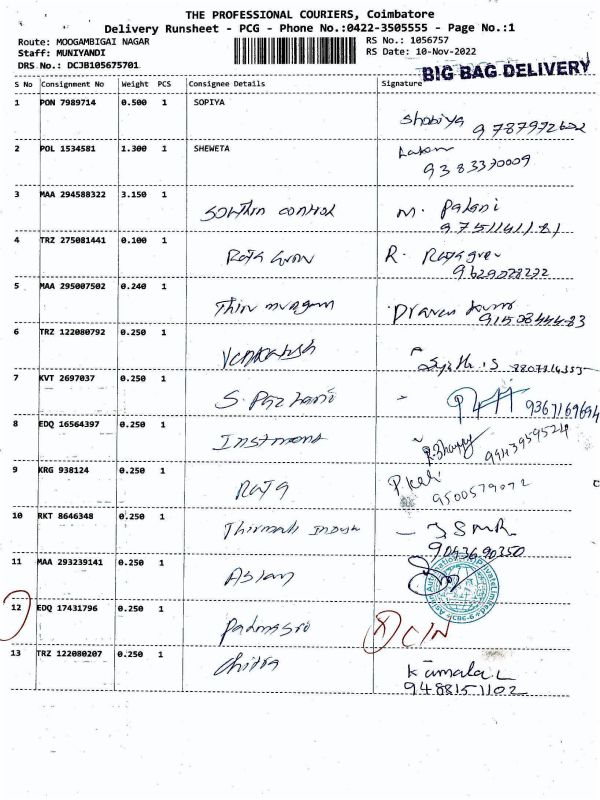 THE PROFESSIONAL COURIERS, Coimbatore
Delivery Runsheet - PCG - Phone No.:0422-3505555 - Page No.:1
Route: MOOGAMBIGAI NAGAR
Staff: MUNIYANDI
DRS No.: DCJB105675701
RS No.: 1056757
RS Date: 10-Nov-2022
BIG BAG DELIVERY
S No Consignment No Weight PCS Consignee Details Signature
1 PON 7989714 0.500 1 SOPIYA
Shobiya
2 POL 1534581 1.300 1 SHEWETA
9383370009
3 MAA 294588322 3.150 1
control M. Palani
9751141181
4 TRZ 275081441 0.100 1
R.
5 MAA 295007502 0.240 1
6 TRZ 122080792 0.250 1
Venkatesh
7 KVT 2697037 0.250 1
S. Pazhani 9367169694
8 EDQ 16564397 0.250 1
9943959524
9 KRG 938124 0.250 1
Raja 9500579072
10 RKT 8646348 0.250 1
9043690350
11 MAA 293239141 0.250 1
Asian
12 EDQ 17431796 0.250 1
13 TRZ 122080207 0.250 1
Chitra Kamala.L
9488151102